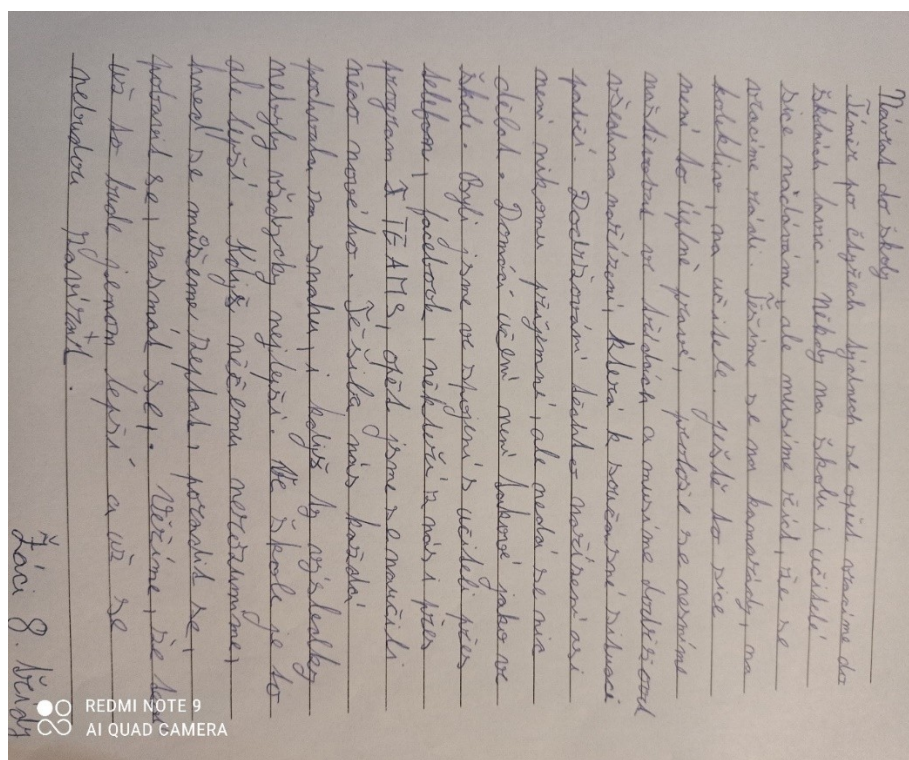 Návrat do školy
Téměř po čtyřech týdnech se opět vracíme do
školních lavic. Někdy na školu i učitelé
sice nadáváme, ale musíme říct, že se
vracíme rádi. Těšíme se na kamarády, na
kolektiv, na učitele. Ještě to sice
není to úplně pravé, protože se nesmíme
navštěvovat ve třídách a musíme dodržovat
všechna nařízení, která k současné situaci
patří. Dodržování těchto nařízení asi
není nikomu příjemné, ale nedá se nic
dělat. Domácí učení není takové jako ve
škole. Byli jsme ve spojení s učiteli přes
telefon, facebook, někteří z nás i přes
program TEAMS, opět jsme se naučili
něco nového. Těšila nás každá
pochvala za snahu, i když ty výsledky
nebyly vždycky nejlepší. Ve škole je to
ale lepší. Když něčemu nerozumíme,
hned se můžeme zeptat, poradit se,
pobavit se, zasmát se. Věříme, že teď
už to bude jenom lepší a už se
nebudou zavírat.
Žáci 8. třídy
REDMI NOTE 9
AI QUAD CAMERA